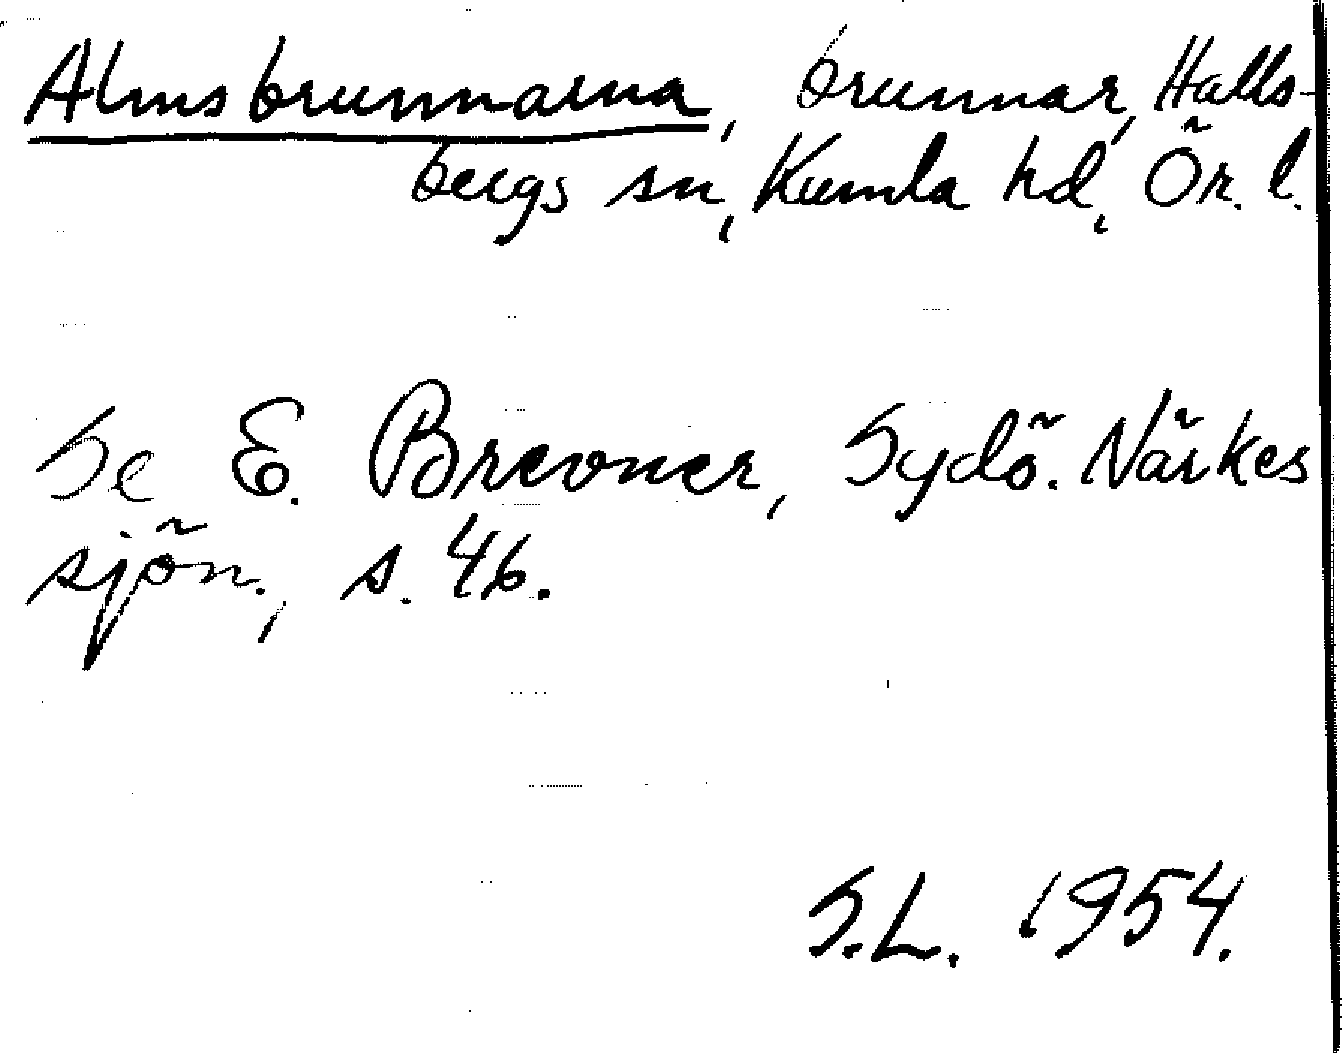 Almsbrunnarna, brunnar, Halls-
bergs sn, Kumla hd, Ör. l.
Se E. Brevner, Sydö. Närkes
sjön., s. 46.
S.L. 1954.